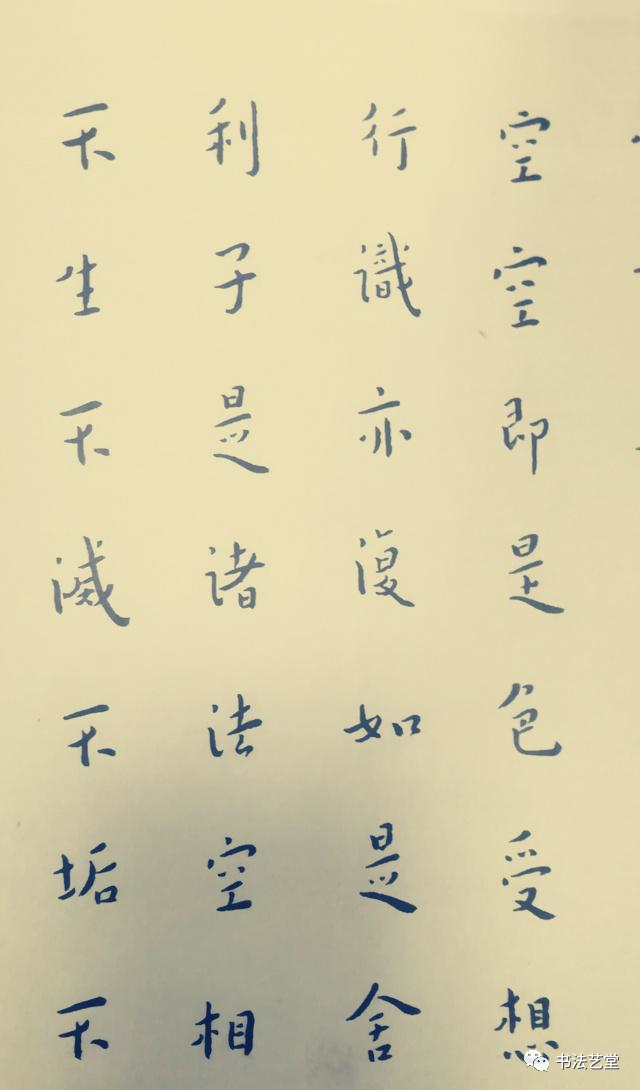 空空即是色受想
行識亦復如是舍
利子是诸法空相
不生不滅不垢不
书法艺堂